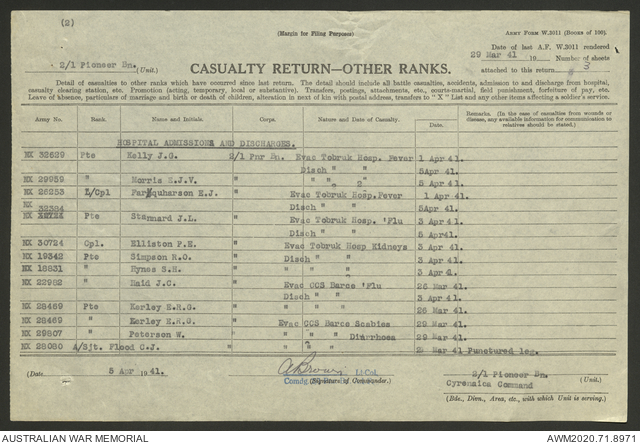 (2)
(Margin for Filing Purposes)
ARMY FORM W.3011 (BOOKS OF 100).
Date of last A.F. W.3011 rendered
29 Mar 41 19 Number of sheets
2/1 Pioneer Bn. (Unit.)
CASUALTY RETURN—OTHER RANKS.
attached to this return 3
Detail of casualties to other ranks which have occurred since last return. The detail should include all battle casualties, accidents, admission to and discharge from hospital,
casualty clearing station, etc. Promotion (acting, temporary, local or substantive). Transfers, postings, attachments, etc., courts-martial, field punishment, forfeiture of pay, etc.
Leave of absence, particulars of marriage and birth or death of children, alteration in next of kin with postal address, transfers to "X" List and any other items affecting a soldier's service.
Army No. Rank. Name and Initials. Corps. Nature and Date of Casualty. Date. Remarks. (In the case of casualties from wounds or disease, any available information for communication to relatives should be stated.)
HOSPITAL ADMISSIONS AND DISCHARGES.
NX 32629 Pte Kelly J.G. 2/1 Pnr Bn. Evac Tobruk Hosp. Fever 1 Apr 41.
Disch " " 5 Apr 41.
NX 29959 " Morris E.J.V. " " " 5 Apr 41.
NX 26253 L/Cpl Farquharson H.J. " Evac Tobruk Hosp. Fever 1 Apr 41.
NX 32384 Disch " " 5 Apr 41.
Pte Stannard J.L. " Evac Tobruk Hosp. 'Flu 3 Apr 41.
Disch " " 5 Apr 41.
NX 30724 Cpl. Elliston P.H. " Evac Tobruk Hosp Kidneys 3 Apr 41.
NX 19342 Pte Simpson R.O. " Disch " " 3 Apr 41.
NX 18831 " Hynes S.H. " " " " 3 Apr 41.
NX 22982 " Haid J.C. " Evac CCS Barce 'Flu 26 Mar 41.
Disch " " 3 Apr 41.
NX 28469 Pte Kerley E.R.G. " " " " 26 Mar 41.
NX 28469 " Kerley E.R.G. " Evac CCS Barce Scabies 29 Mar 41.
NX 29807 " Peterson W. " " " " Diarrhoea 29 Mar 41.
NX 28080 A/Sjt. Flood C.J. " " " " Mar 41 Punctured leg.
(Date 5 Apr 1941.
A Brown Lt Col.
Comdg (Signature of Commander.)
2/1 Pioneer Bn.
Cyrenaica Command
(Bde., Divn., Area, etc., with which Unit is serving.)
AUSTRALIAN WAR MEMORIAL
AWM2020.71.8971